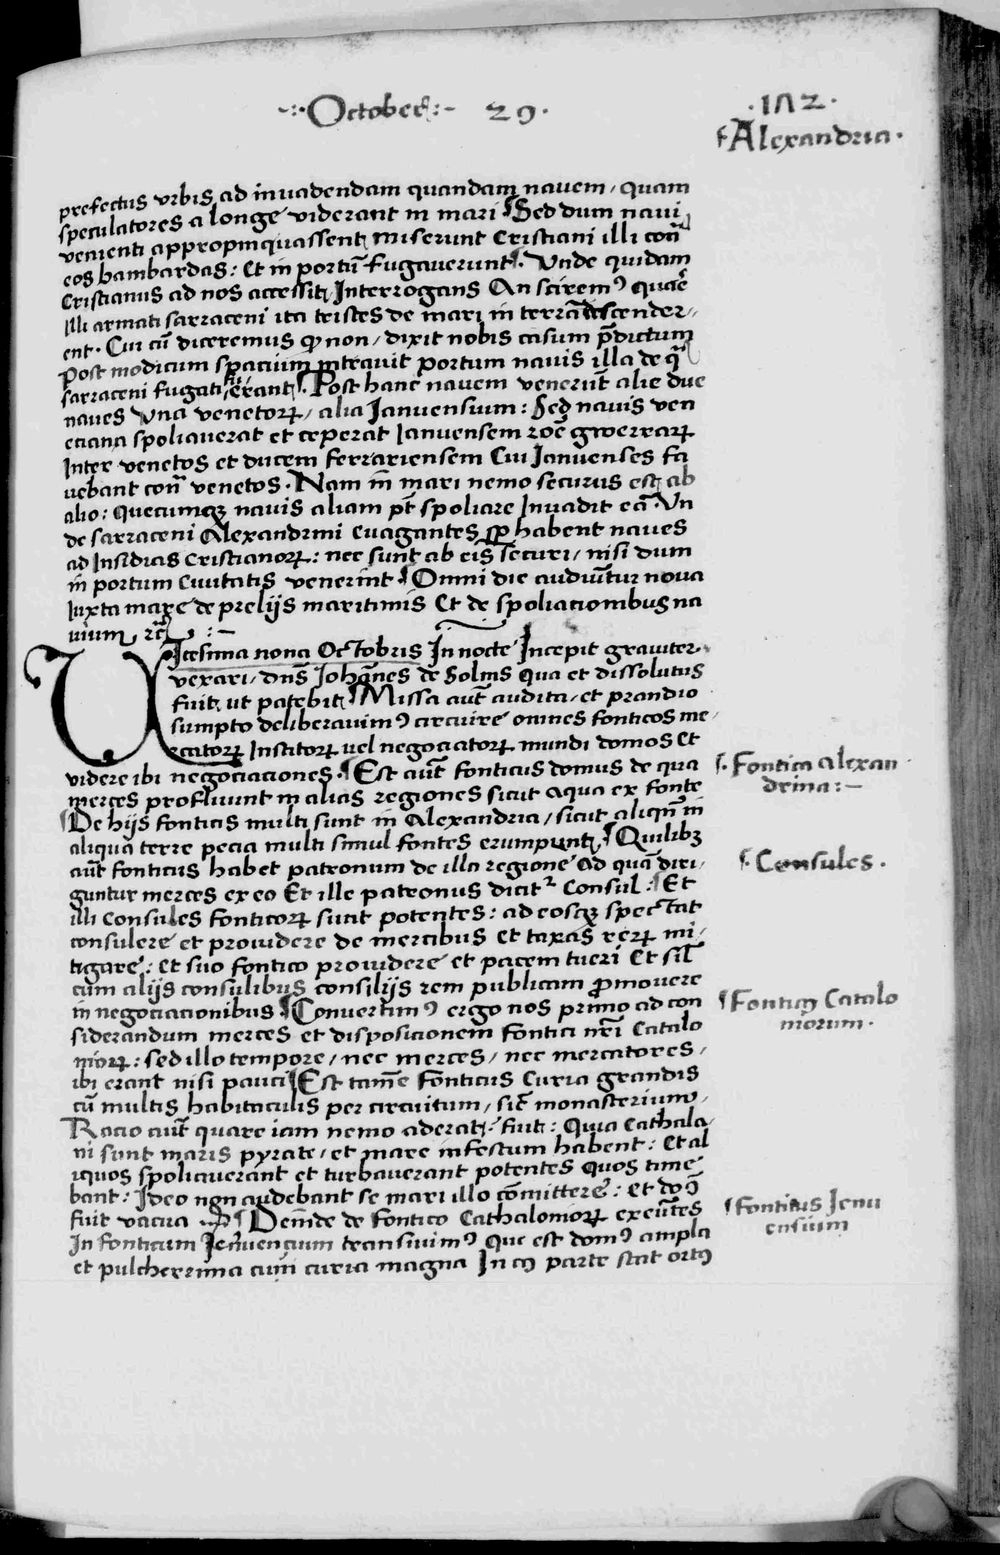 -:·October̄:- 29·
·172·
¶Alexandria·
prefectus vrbis ad inuadendam quandam nauem / quam
speculatores a longe viderant in mari ¶Sed dum naui
venienti appropinquassent miserunt Cristiani illi con̄
eos bambardas: Et in portū fugauerunt. Vnde quidam
Cristianus ad nos accessit Interrogans An sciremꝰ quare
illi armati sarraceni ita tristes de mari in terrā descender/
ent. Cui cū diceremus ꝙ non / dixit nobis casum p̄dictum
Post modicum spacium intrauit portum nauis illa de qᷓ
sarraceni fugati erant. ¶Post hanc nauem venerūt alie due
naues Vna venetoꝝ / alia Januensium: Sed nauis ven
eciana spoliauerat et ceperat Januensem roē gwerraꝝ
Inter venetos et ducem ferrariensem Cui Januenses fa
uebant con̄ venetos. Nam in̄ mari nemo securus est ab
alio: quecumqꝫ nauis aliam pt̄ spoliare Inuadit eā. Vn
de sarraceni Alexandrini euagantes sp̄ habent naues
ad Insidias Cristianoꝝ: nec sunt ab eis securi / nisi dum
in portum Ciuitatis venerint ¶Omni die audiūtur noua
Iuxta mare de prelijs maritimis Et de spoliacionibus na
uium rc̄ :-
VIcesima nona Octobris In nocte Incepit grauiter
vexari / dn̄s Johānes de Solms qua et dissolutus
fuit ut patebit ¶Missa aut̄ audita / et prandio
sumpto deliberauimꝰ circuire omnes fonticos me/
rcatoꝝ Institoꝝ uel negociatoꝝ mundi domos Et
videre ibi negociaciones. ¶Est aut̄ fonticus domus de qua
merces profluunt in alias regiones sicut aqua ex fonte
¶De hijs fonticis multi sunt in Alexandria / sicut aliqn̄ in
aliqua terre pecia multi simul fontes erumpunt. ¶Quilibꝫ
aut̄ fonticus habet patronum de illa regione Ad quā diri/
guntur merces ex eo Et ille patronus dicitᷣ Consul: ¶Et
illi Consules fonticoꝝ sunt potentes: ad eosqꝫ spectat
consulere et prouidere de mercibus Et taxas reꝝ mi/
tigare: Et suo fontico prouidere et pacem tueri Et sil̄
cum alijs consulibus consilijs rem publicam ꝓmouere
in negociacionibus ¶Conuertimꝰ ergo nos primo ad con
siderandum merces et disposicionem fontici nrī Catalo
nioꝝ: sed illo tempore / nec merces / nec mercatores /
ibi erant nisi pauci ¶Est tamē Fonticus Curia grandis
cū multis habitaculis per circuitum / sic̄ monasterium /
Racio aut̄ quare iam nemo aderat: fuit: Quia Cathala/
ni sunt maris pyrate / et mare infestum habent: Et al
iquos spoliauerant et turbauerant potentes Quos time
bant: Ideo non audebant se mari illo cōmittere: Et dom̄
fuit vacua ¶Deīnde de fontico Cathalonioꝝ exeūtes
In fonticum Jenuencium transiuimꝰ Que est domꝰ ampla
et pulcherrima cum curia magna In cꝰ parte stat ortꝰ
¶.Fontica Alexan
drina:-
¶.Consules.
¶Fonticꝰ Catalo
niorum.
¶Fonticus Jenu
ensium